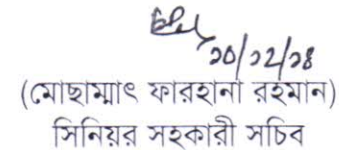 ২০/১২/২৪
(মোছাম্মাৎ ফারহানা রহমান)
সিনিয়র সহকারী সচিব